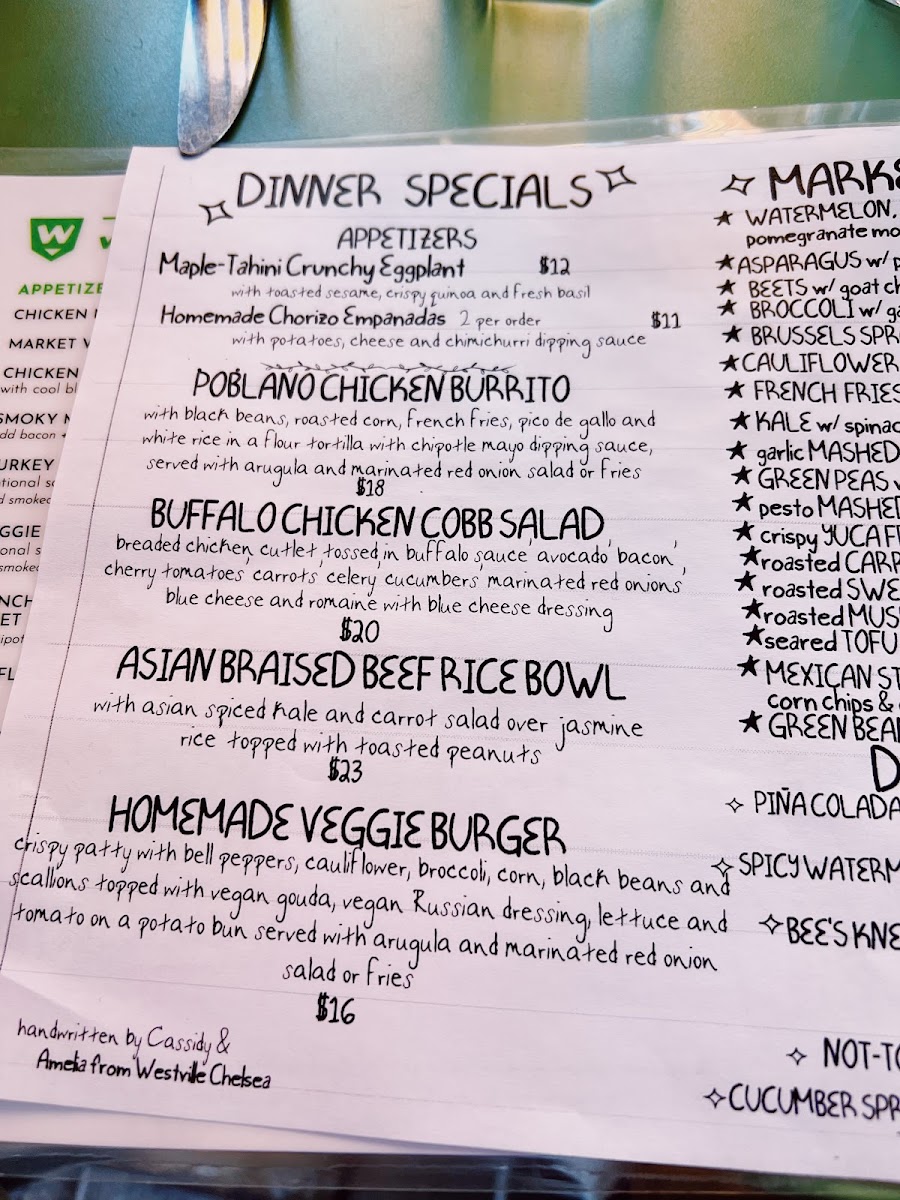 DINNER SPECIALS
APPETIZERS
Maple-Tahini Crunchy Eggplant $12
with toasted sesame, crispy quinoa and fresh basil
Homemade Chorizo Empanadas 2 per order $11
with potatoes, cheese and chimichurri dipping sauce
POBLANO CHICKEN BURRITO
with black beans, roasted corn, french fries, pico de gallo and
white rice in a flour tortilla with chipotle mayo dipping sauce,
served with arugula and marinated red onion salad or fries
$18
BUFFALO CHICKEN COBB SALAD
breaded chicken cutlet tossed in buffalo sauce, avocado, bacon,
cherry tomatoes, carrots, celery, cucumbers, marinated red onions,
blue cheese and romaine with blue cheese dressing
$20
ASIAN BRAISED BEEF RICE BOWL
with asian spiced kale and carrot salad over jasmine
rice topped with toasted peanuts
$23
HOMEMADE VEGGIE BURGER
crispy patty with bell peppers, cauliflower, broccoli, corn, black beans and
scallions topped with vegan gouda, vegan Russian dressing, lettuce and
tomato on a potato bun served with arugula and marinated red onion
salad or fries
$16
handwritten by Cassidy &
Amelia from Westville Chelsea
WATERMELON,
pomegranate
ASPARAGUS w/
BEETS w/ goat
BROCCOLI w/
BRUSSELS
CAULIFLOWER
FRENCH FRIES
KALE w/
garlic MASHED
GREEN PEAS
pesto MASHED
crispy YUCA
roasted
roasted
roasted
seared TOFU
MEXICAN
corn chips &
GREEN
PIÑA COLADA
SPICY
BEE'S
CUCUMBER
W
CHICKEN
MARKET
CHICKEN
with cool